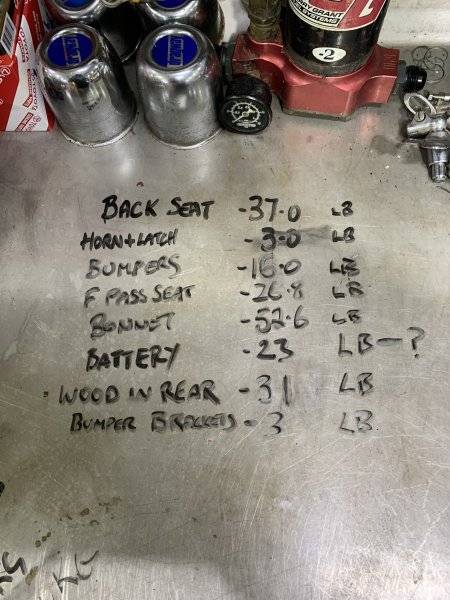 RYGRANT
SYSTEMS
-2
BACK SEAT -37.0 LB
HORN+LATCH -3.0 LB
BUMPERS -16.0 LB
F PASS SEAT -26.8 LB
BONNET -52.6 LB
BATTERY -23 LB - ?
WOOD IN REAR -31 LB
BUMPER BRACKETS - 3 LB